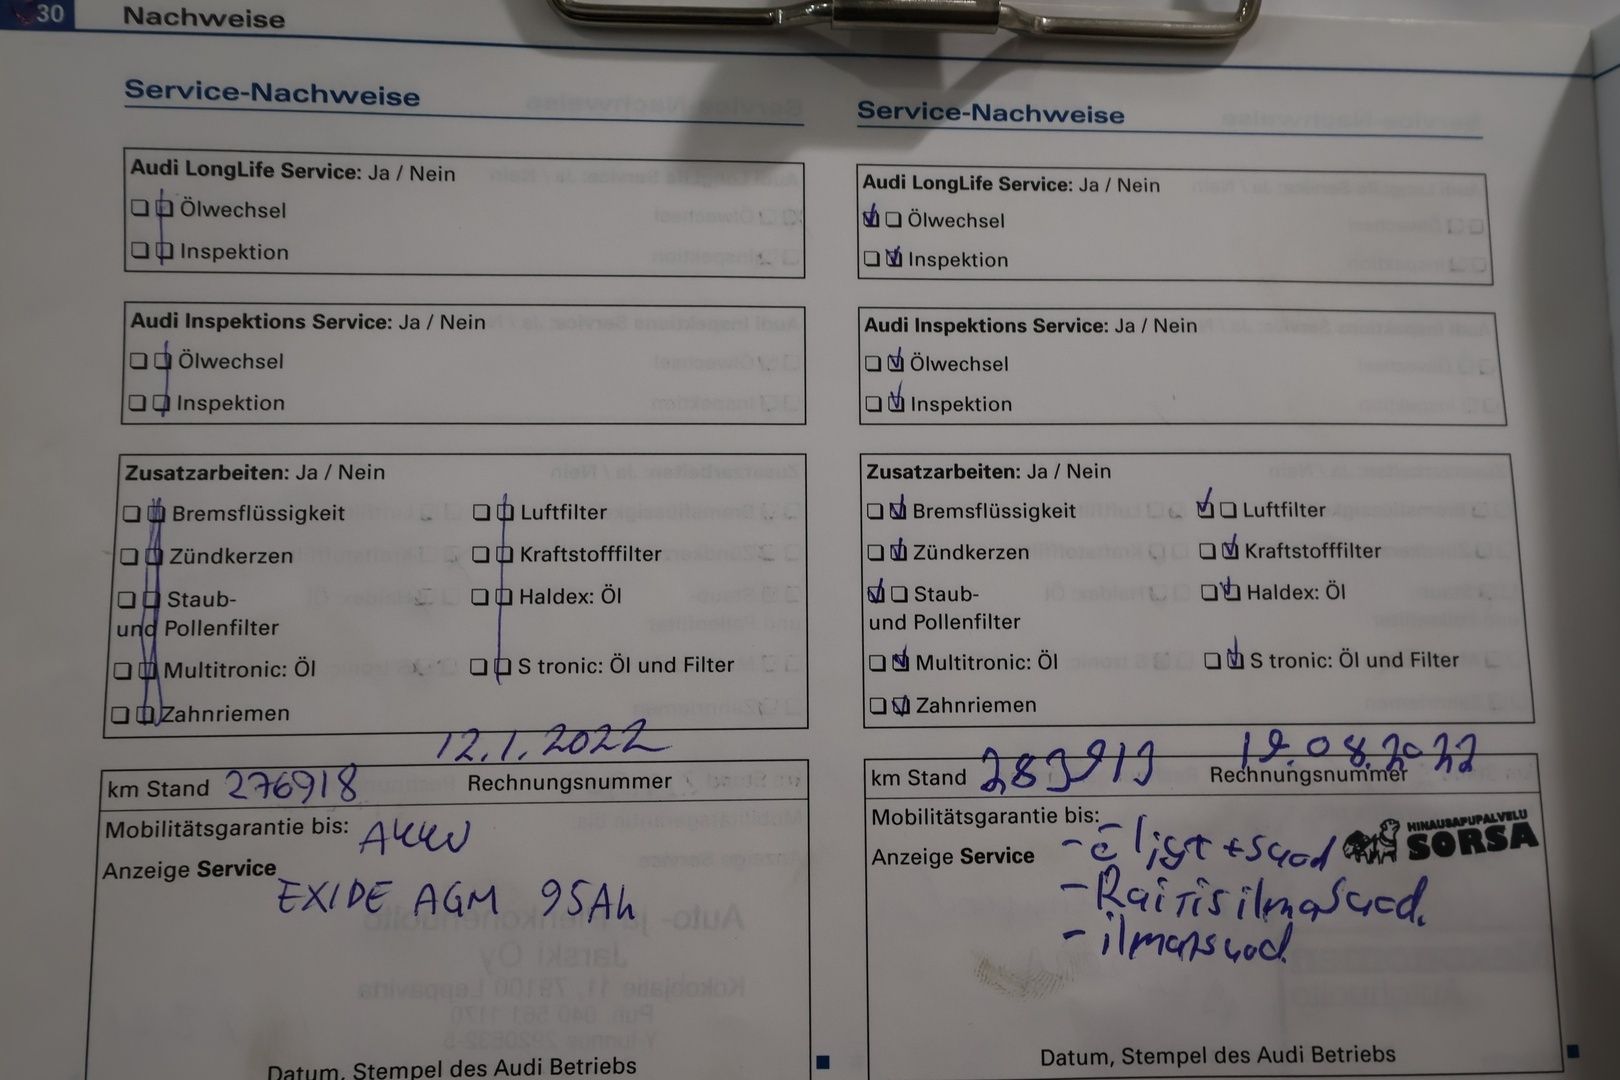 30 Nachweise
Service-Nachweise
Audi LongLife Service: Ja / Nein
Ölwechsel
Inspektion
Audi Inspektions Service: Ja / Nein
Ölwechsel
Inspektion
Zusatzarbeiten: Ja / Nein
Bremsflüssigkeit Luftfilter
Zündkerzen Kraftstofffilter
Staub- Haldex: Öl
und Pollenfilter
Multitronic: Öl S tronic: Öl und Filter
Zahnriemen
12.1.2022
km Stand 276918 Rechnungsnummer
Mobilitätsgarantie bis: AKKU
Anzeige Service
EXIDE AGM 95Ah
Datum, Stempel des Audi Betriebs
Service-Nachweise
Audi LongLife Service: Ja / Nein
Ölwechsel
Inspektion
Audi Inspektions Service: Ja / Nein
Ölwechsel
Inspektion
Zusatzarbeiten: Ja / Nein
Bremsflüssigkeit Luftfilter
Zündkerzen Kraftstofffilter
Staub- Haldex: Öl
und Pollenfilter
Multitronic: Öl S tronic: Öl und Filter
Zahnriemen
19.08.2022
km Stand Rechnungsnummer
Mobilitätsgarantie bis:
HINAUSAPUPALVELU
SORSA
Anzeige Service
- Raitisilmasuod.
- ilmansuod.
Datum, Stempel des Audi Betriebs